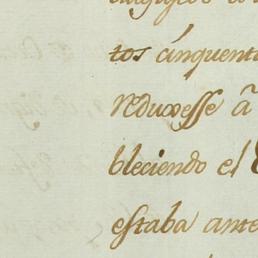 tos cinquent
reduxesse â
bleciendo el
estaba ante